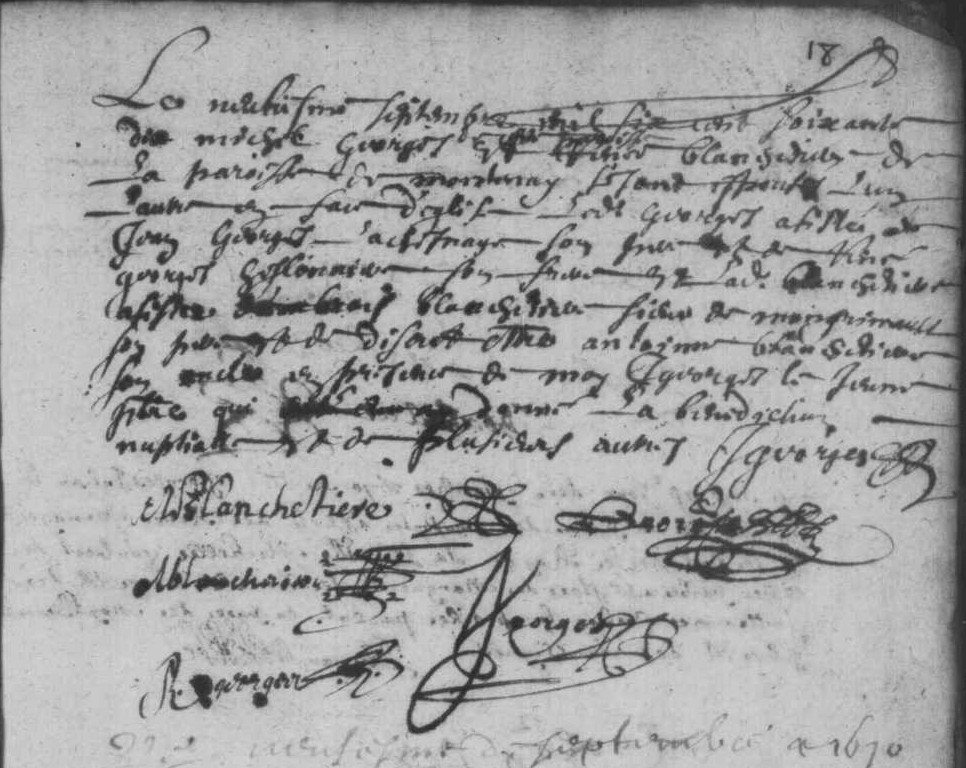 18
Le neufiesme septembre mil six cent soixante
dix michel Georges et blanchetiere de
La paroisse de montenay se sont espousés L'un
L'autre en face d'eglise Ledt Georges assisté de
Jean Georges son pere et de René
georges son frere et Lade blanchetiere
assistee blanchetiere sieur de
son pere et de discret Mtre antoinne blanchetiere
son oncle en presence de moy J georges le Jeune
pbre qui donné La benediction
nuptialle et de plusieurs autres J georges
MBlanchetiere Georges
Ablanchetiere
georges
R georges
neufiesme septembre 1670